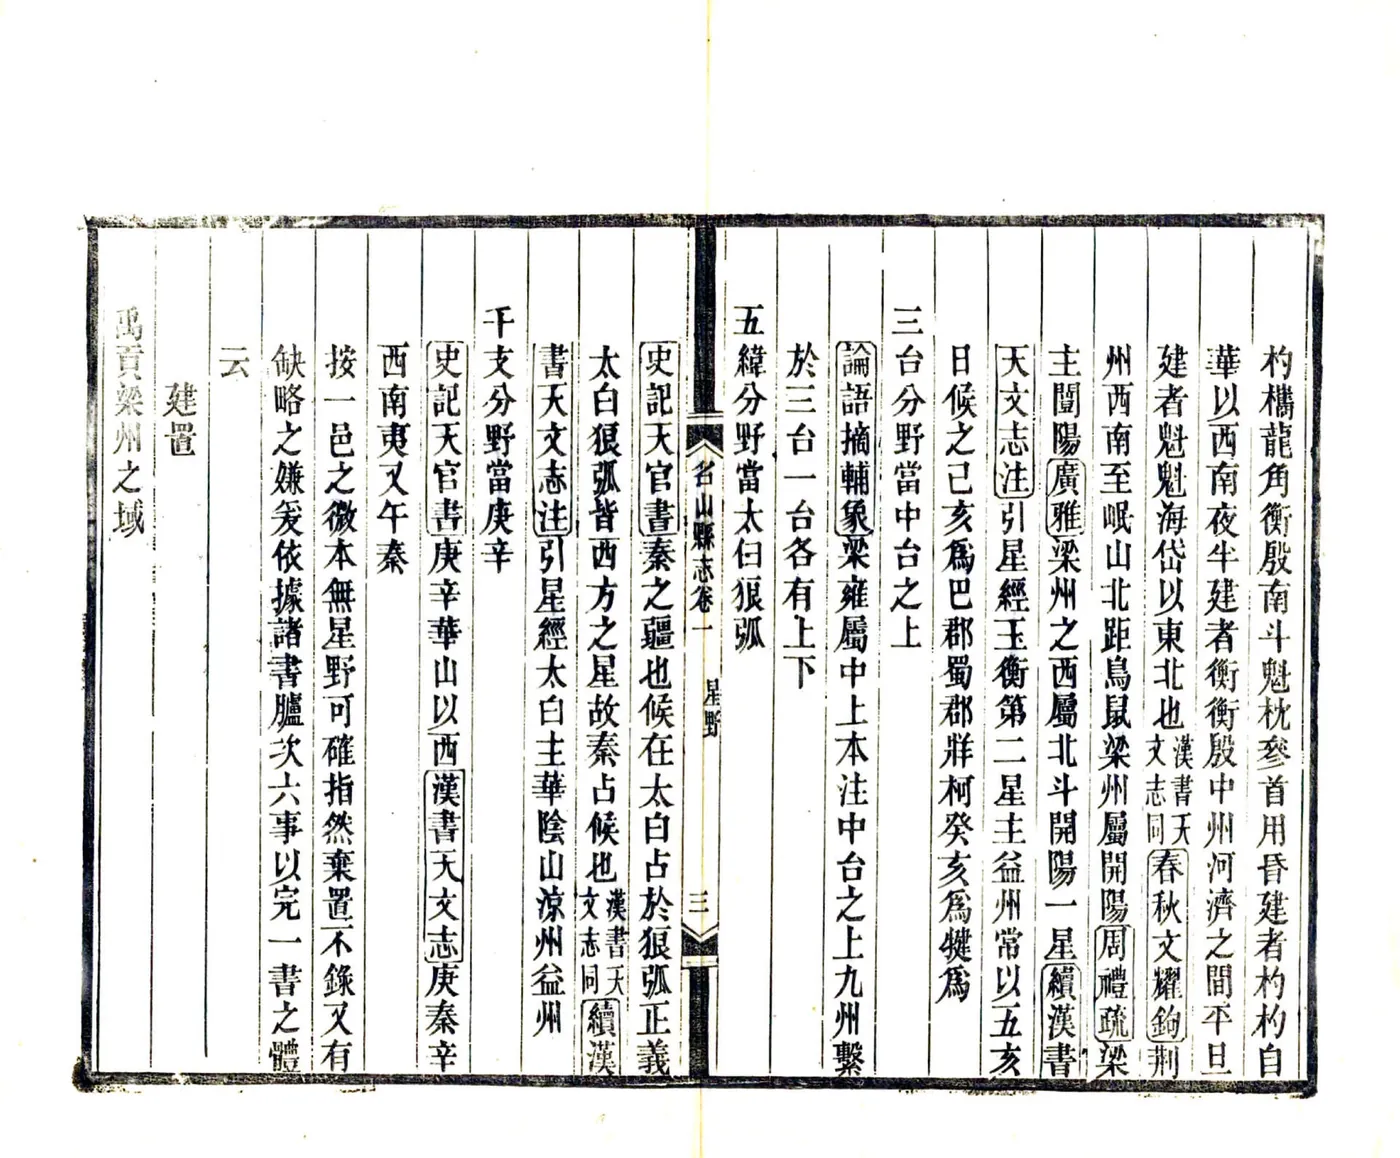 杓檇龍角衡殷南斗魁枕參首用昏建者杓杓自
華以西南夜半建者衡衡殷中州河濟之間平旦
建者魁魁海岱以東北也漢書天文志同春秋文耀鉤荆
州西南至岷山北距鳥鼠梁州屬開陽周禮疏梁
主闓陽廣雅梁州之西屬北斗開陽一星續漢書
天文志注引星經玉衡第二星主益州常以五亥
日候之己亥爲巴郡蜀郡牂柯癸亥爲犍爲
三台分野當中台之上
論語摘輔象梁雍屬中上本注中台之上九州繫
於三台一台各有上下
五緯分野當太白狼弧
名山縣志卷一
星野
三
史記天官書秦之疆也候在太白占於狼弧正義
太白狼弧皆西方之星故秦占候也漢書天文志同續漢
書天文志注引星經太白主華陰山涼州益州
干支分野當庚辛
史記天官書庚辛華山以西漢書天文志庚秦辛
西南夷又午秦
按一邑之微本無星野可確指然棄置不錄又有
缺略之嫌爰依據諸書臚次六事以完一書之體
云
建置
禹貢梁州之域